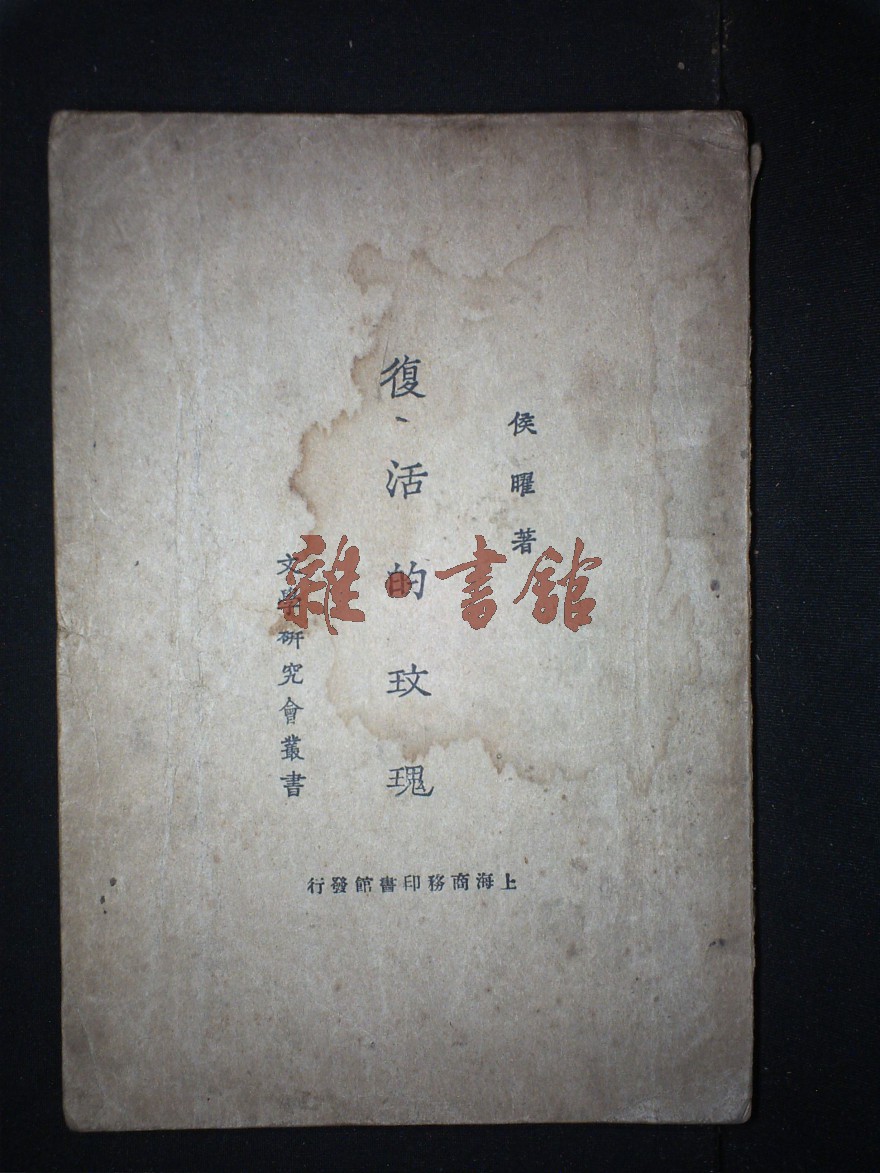 侯曜著
復活的玫瑰
文學研究會叢書
上海商務印書館發行
雜·書館